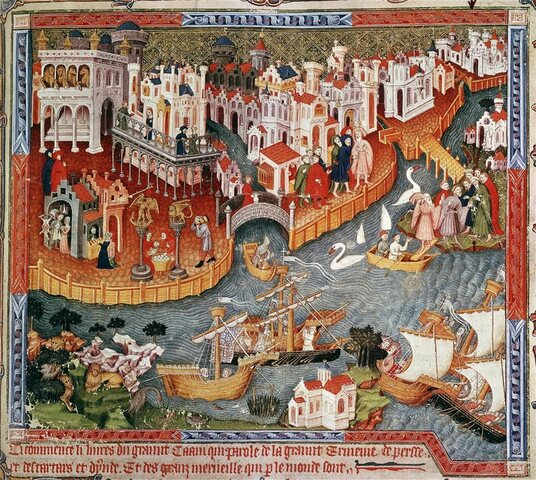 Ci commence li liures du graunt Caam qui parole de la graunt Ermenie de persse
et des tartars et dynde. Et des granz merueille qui p le monde sont.